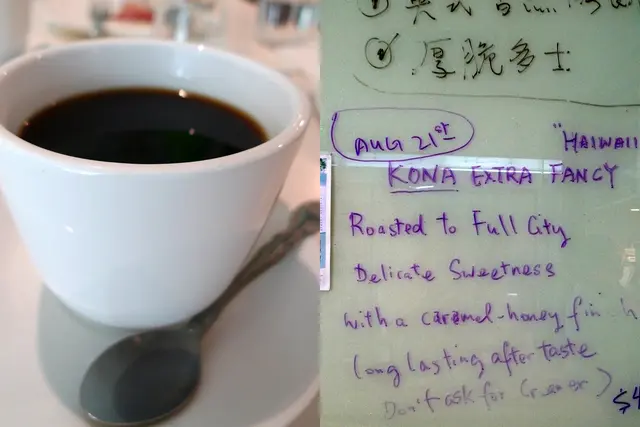 ② 厚脆多士
AUG 21st
"HAIWAII
KONA EXTRA FANCY
Roasted to Full City
Delicate Sweetness
with a caramel-honey fin h
long lasting after taste
Don't ask for Creamer)
$4